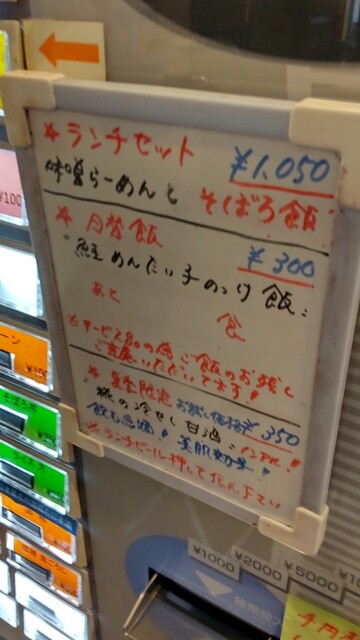 *ランチセット ¥1,050
味噌らーめんと そぼろ飯
*月替飯 ¥300
鮭めんたい子のっけ飯
あと 食
*サービス品の為ご飯のお残し
ご遠慮いただいてます!
*夏季限定 お試し価格 ¥350
桃の冷やし甘酒 ノンアル!
飲む点滴! 美肌効果!
*ランチビール押して下さい
¥1000 ¥2000 ¥5000
¥100
ーン
そぼろ飯
ライス